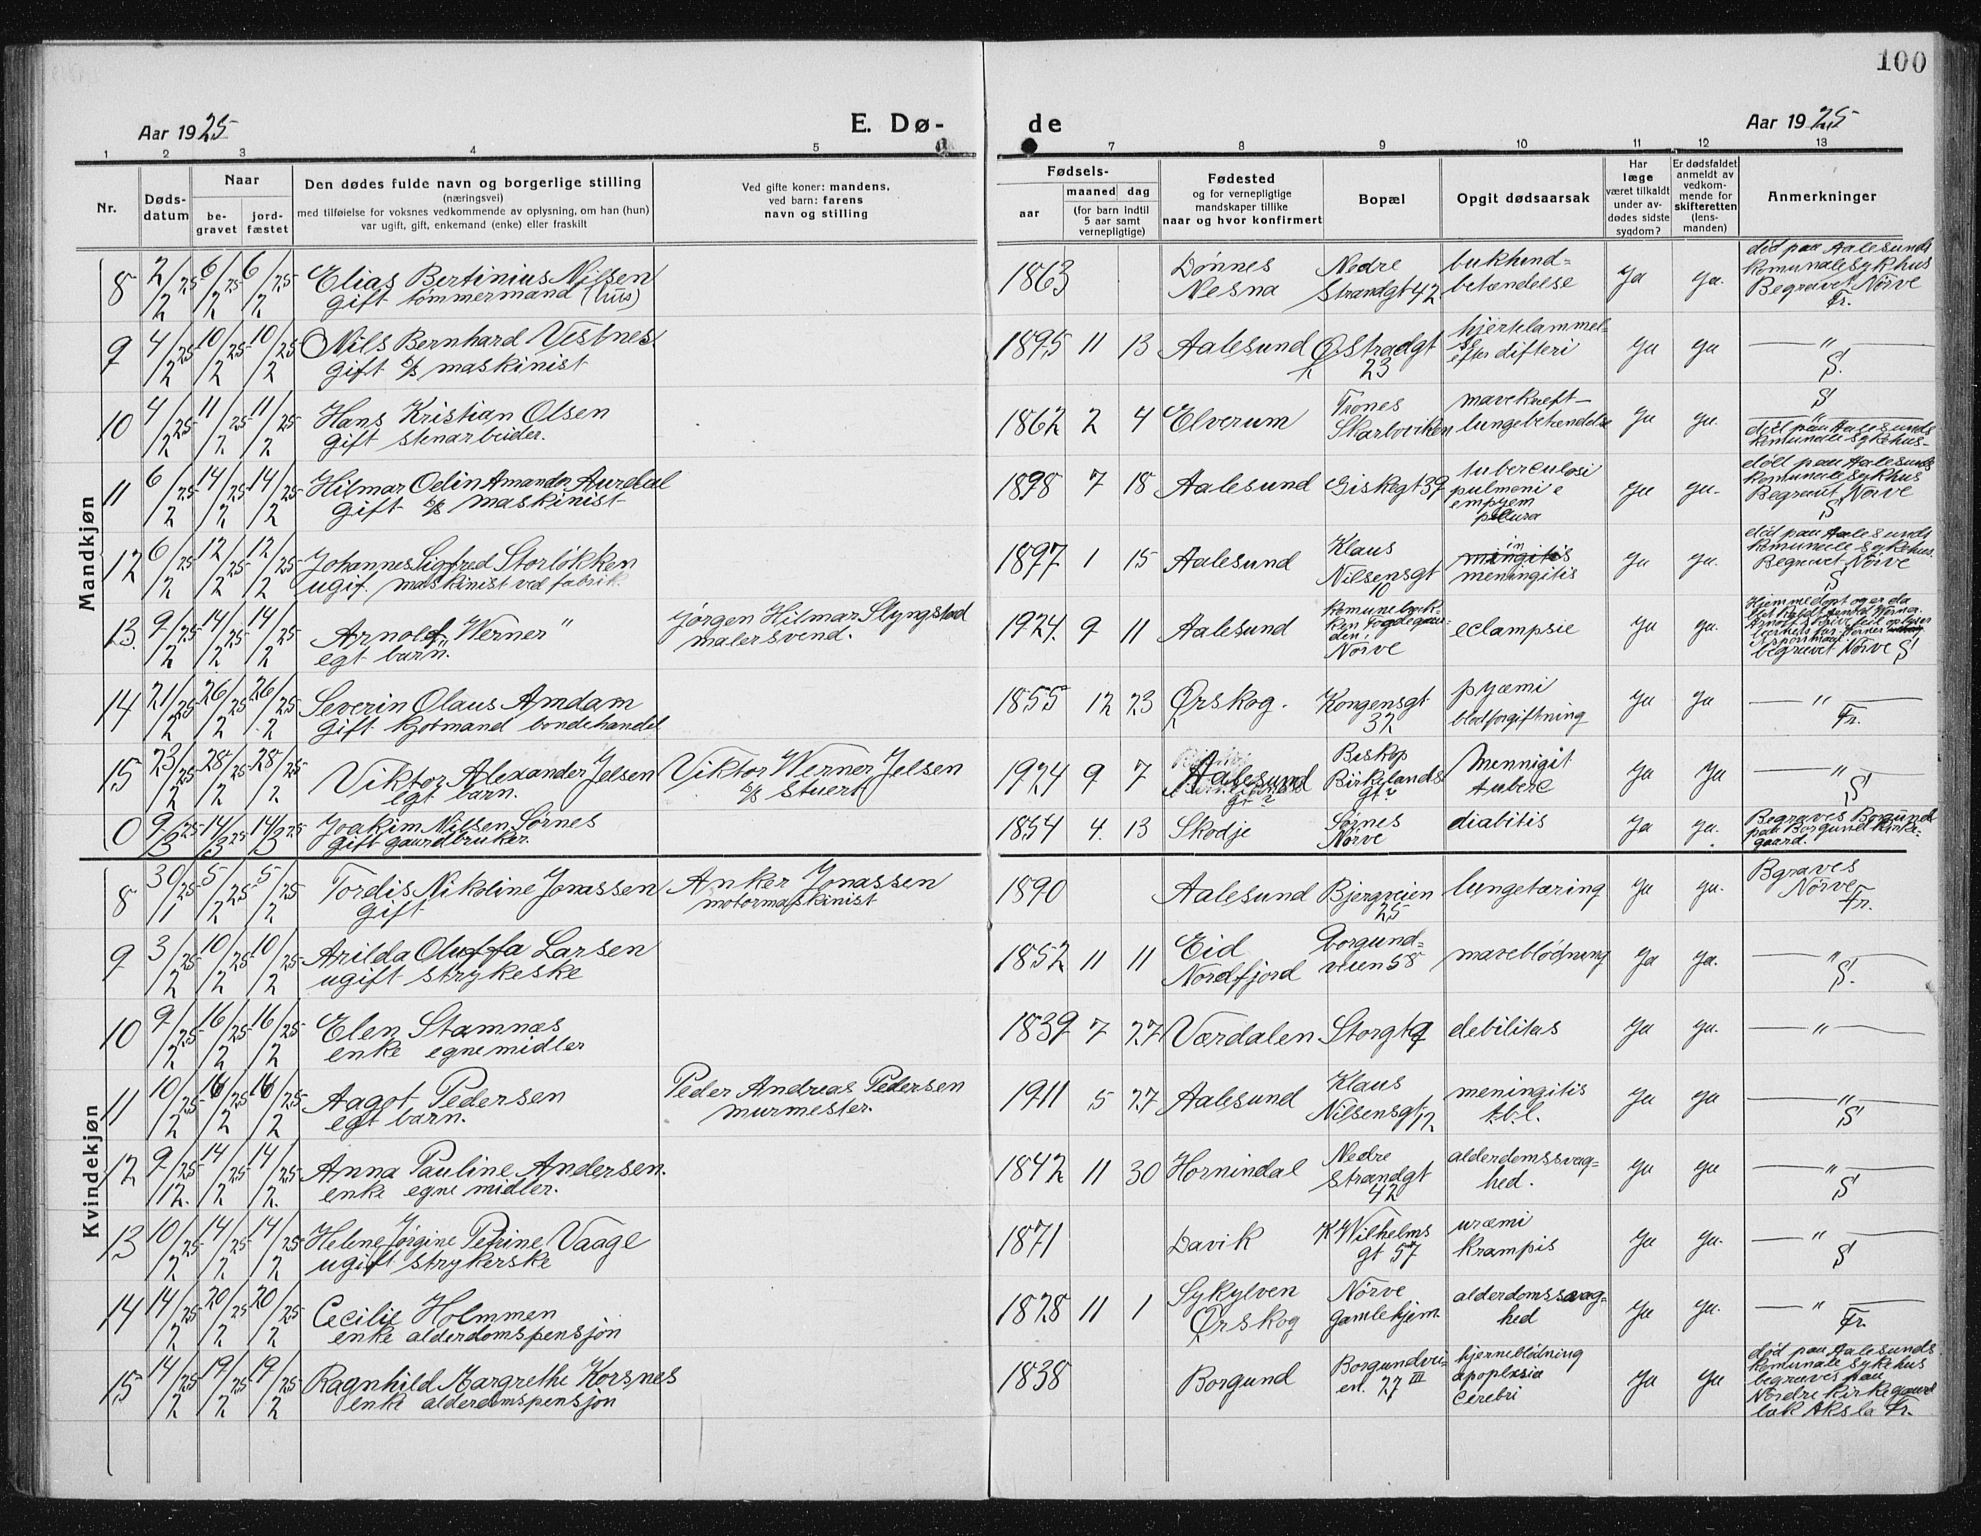 100
Aar 1925
E. Dø-
de
Aar 1925
1 2 3 4 5 7 8 9 10 11 12 13
Nr.
Døds-
datum
Naar
be-
gravet
jord-
fæstet
Den dødes fulde navn og borgerlige stilling
(næringsvei)
med tilføielse for voksnes vedkommende av oplysning, om han (hun)
var ugift, gift, enkemand (enke) eller fraskilt
Ved gifte koner: mandens.
ved barn: farens
navn og stilling
Fødsels-
aar
maaned dag
(for barn indtil
5 aar samt
vernepligtige)
Fødested
og for vernepligtige
mandskaper tillike
naar og hvor konfirmert
Bopæl
Opgit dødsaarsak
Har
læge
været tilkaldt
under av-
dødes sidste
sygdom?
Er dødsfaldet
anmeldt av
vedkom-
mende for
skifteretten
(lens-
manden)
Anmerkninger
Mandkjøn
8 2/2 25 6/2 25 6/2 25 Elias Bertinius Nilsen
gift tømmermand (hus)
1863 Dønnes
Nesna
Nedre
Strandgt 42
bukhind=
betændelse
ja ja.
død paa Aalesunds
komunale sykhus
Begravet Nørve
Fr.
9 4/2 25 10/2 25 10/2 25 Nils Bernhard Vestnes
gift maskinist
1895 11 13 Aalesund Ø. Stradgt
23
hjertelammel-
se
efter difteri
ja ja
— " —
S.
10 4/2 25 11/2 25 11/2 25 Hans Kristian Olsen
gift stenarbeider.
1862 2 4 Elverum
Trones
Skarboviken
mavekræft—
lungebetændelse
ja ja.
S
— " —
død paa Aalesunds
komunale sykehus-
11 6/2 25 14/2 25 14/2 25 Hilmar Odin Amander Aurdal
gift maskinist
1898 7 18 Aalesund Giskegt 37
tuberculosi
pulmoni e
empyem
pleura
ja ja.
død paa Aalesunds
komunale sykhus
Begravet Nørve
S
12 6/2 25 12/2 25 12/2 25 Johannes Sigfred Storløkken
ugif. maskinist ved fabrik
1897 1 15 Aalesund
Klaus
Nilsensgt
10
meningitis
ja ja.
død paa Aalesunds
komunale sykehus
Begravet Nørve
S
13. 9/2 25 14/2 25 14/2 25 Arnold, Werner "
egt barn.
Jørgen Hilmar Slyngstad
malersvend.
1924. 9 11 Aalesund
Nørve
eclampsie
ja ja.
begravet Nørve S
14 21/2 25 26/2 25 26/2 25 Severin Olaus Amdam
gift kjøpmand londehandel
1855 12 23 Ørskog. Kongensgt
32
pyæmi
blodforgiftning
ja ja
— " —
Fr.
15 23/2 25 28/2 25 28/2 25 Viktor Alexander Jelsen
egt barn.
Viktor Werner Jelsen
Stuert
1924 9 7 Aalesund
Biskop
Birkelands
gt 2
Mennigit
tuberc
ja ja
— " —
S
0 9/3 25 14/3 25 14/3 25 Joakim Nilsen Sørnes
gift gaardbruker.
1854 4. 13 Skodje Sørnes
Nørve
diabitis
ja ja.
Begraves Borgund
paa Borgund kirke-
gaard.
Kvindekjøn
8 30/1 25 5/2 25 5/2 25 Tordis Nikoline Jonassen
gift
Anker Jonassen
motormaskinist
1890 Aalesund Bjergveien
25
lungetæring
ja ja.
Bgraves
Nørve
Fr.
9 3/2 25 10/2 25 10/2 25 Arilda Oluffa Larsen
ugift strykeske
1852 11 11 Eid
Nordfjord
Borgund-
veien 58
maveblødning
ja ja.
— " —
S.
10 9/2 25 16/2 25 16/2 25 Elen Stamnæs
enke egne midler
1839 7 27 Værdalen Storgt 9 debilitas
ja ja.
— " —
11 10/2 25 16/2 25 16/2 25 Aagot Pedersen
egt barn.
Peder Andreas Pedersen
murmester.
1911 5 27 Aalesund
Klaus
Nilsensgt 12
meningitis
t.b.l.
ja ja
— " —
S
12 9/12. 25 14/2 25 14/2. 25 Anna Pauline Andersen.
enke egne midler.
1842 11 30 Hornindal
Nedre
Strandgt
42
alderdomssvag=
hed.
ja ja
— " —
S
13 10/2 25 14/2 25 14/2 25 Helene Jørgine Petrine Vaage
ugift strykerske
1871 Davik
K Wilhelms
gt 57
uræmi
krampis
ja ja.
— " —
S
14 14/2 25 20/2 25 20/2 25 Cecilie Holmmen
enke alderdomspensjon
1828 11 1 Sykylven
Ørskog
Nørve
gamlehjem.
alderdomssvag-
hed
ja ja.
— " —
Fr.
15 14/2 25 19/2 25 19/2 25 Ragnhild Margrethe Korsnes
enke alderdomspensjon
1838 Borgund
Borgundvei-
en. 27 III
hjerneblødning
apoplexia
Cerebri
ja ja
død paa Aalesunds
komunale sykehus
begraves paa
Nordre kirkegaard
lak Aksla Fr.